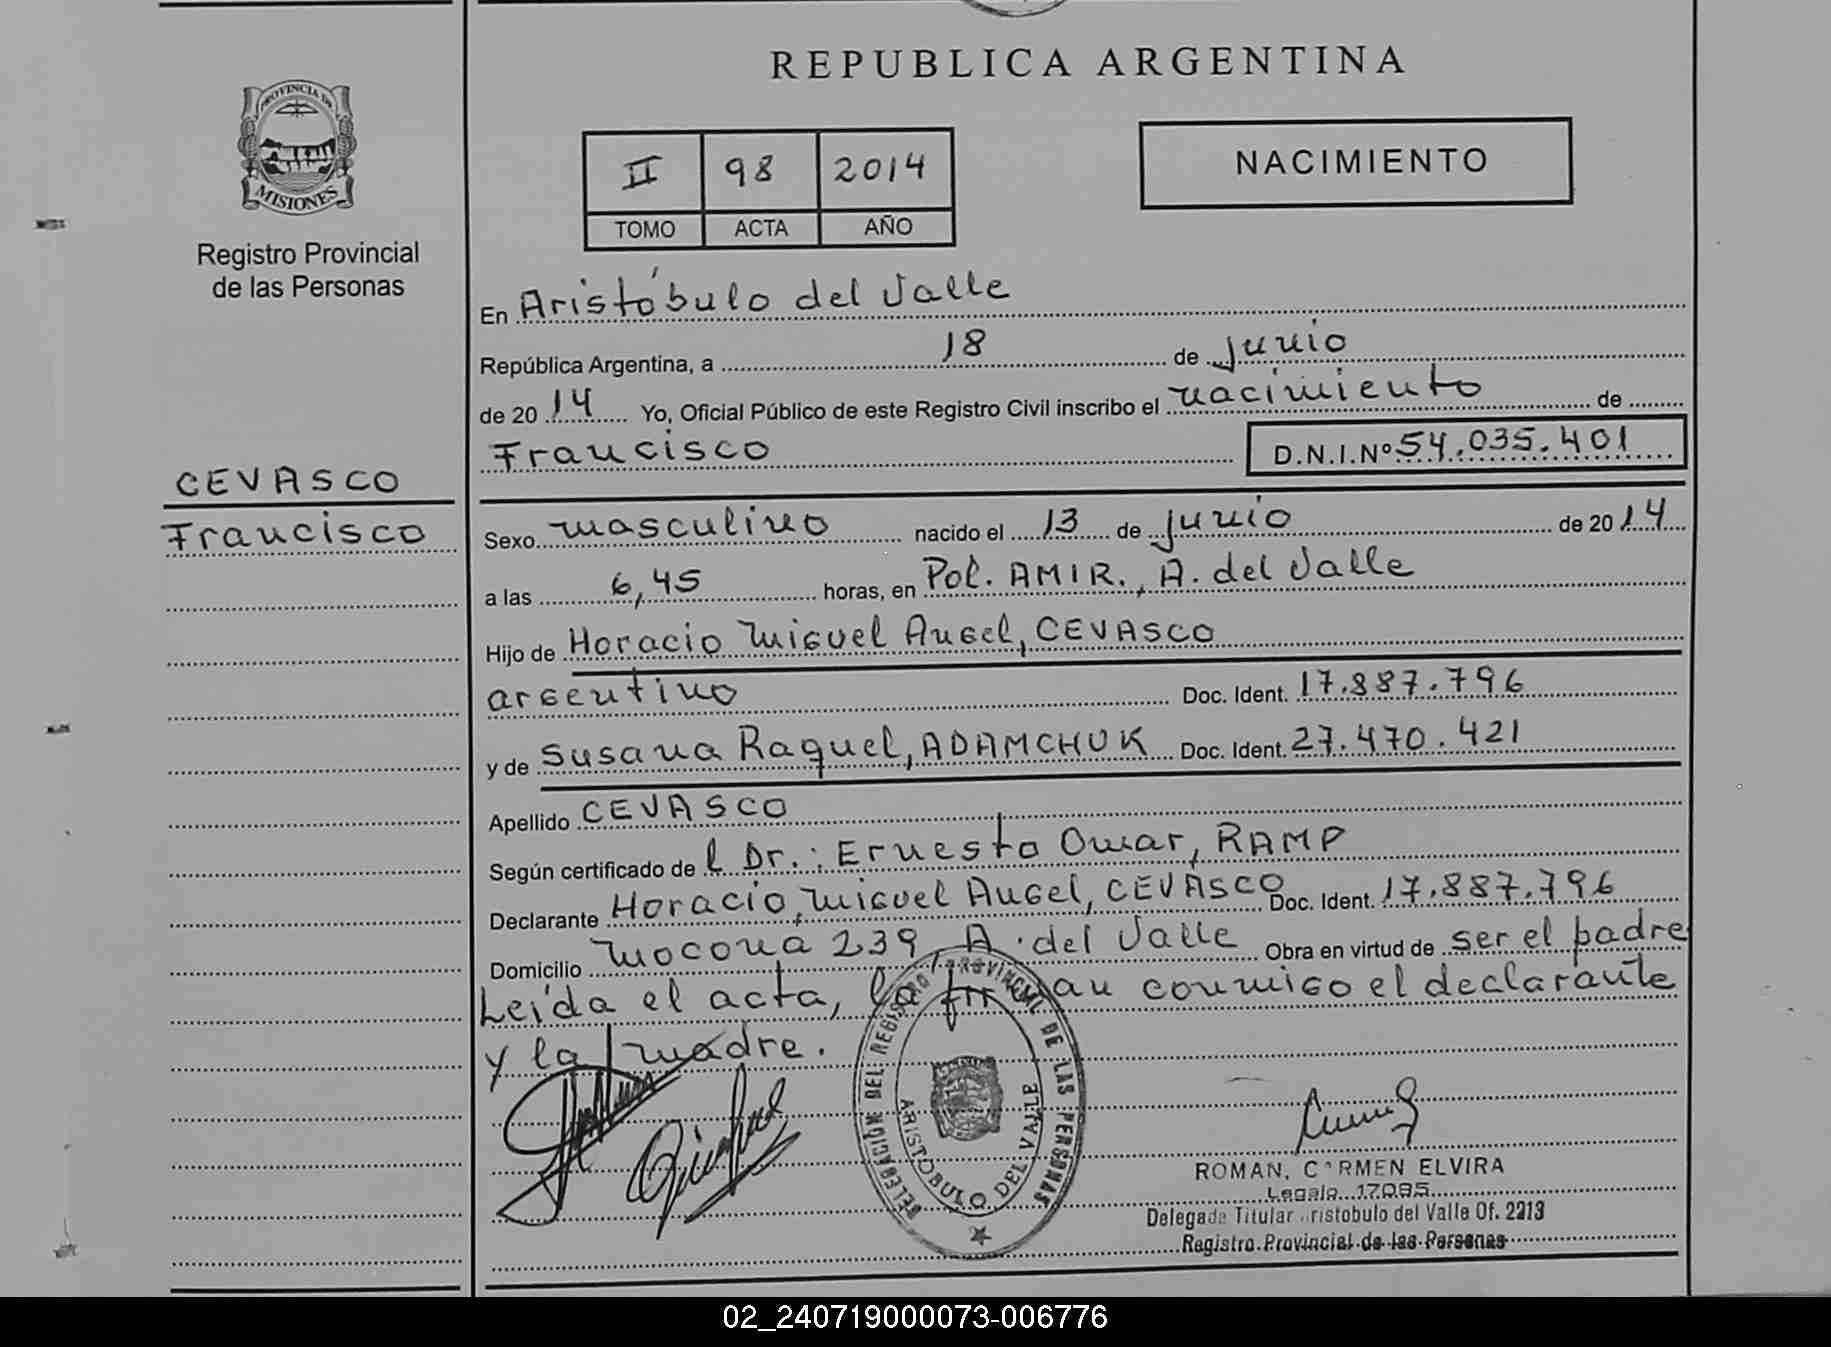 REPUBLICA ARGENTINA
PROVINCIA DE
MISIONES
Registro Provincial
de las Personas
II 98 2014
TOMO ACTA AÑO
NACIMIENTO
En Aristóbulo del Valle
República Argentina, a 18 de junio
de 2014 Yo, Oficial Público de este Registro Civil inscribo el nacimiento de
Francisco D.N.I.Nº 54.035.401
CEVASCO
Francisco
Sexo masculino nacido el 13 de junio de 2014
a las 6,45 horas, en Pol. AMIR., A. del Valle
Hijo de Horacio Miguel Angel, CEVASCO
argentino Doc. Ident. 17.887.796
y de Susana Raquel, ADAMCHUK Doc. Ident. 27.470.421
Apellido CEVASCO
Según certificado de l Dr.: Ernesto Omar, RAMP
Declarante Horacio Miguel Angel, CEVASCO Doc. Ident. 17.887.796
Domicilio Mocona 239, A. del Valle Obra en virtud de ser el padre
Leída el acta, la firman conmigo el declarante
y la madre.
DELEGACIÓN DEL REGISTRO PROVINCIAL DE LAS PERSONAS
ARISTOBULO DEL VALLE
ROMAN, CARMEN ELVIRA
Legajo 17085
Delegada Titular Aristobulo del Valle Of. 2213
Registro Provincial de las Personas
02_240719000073-006776